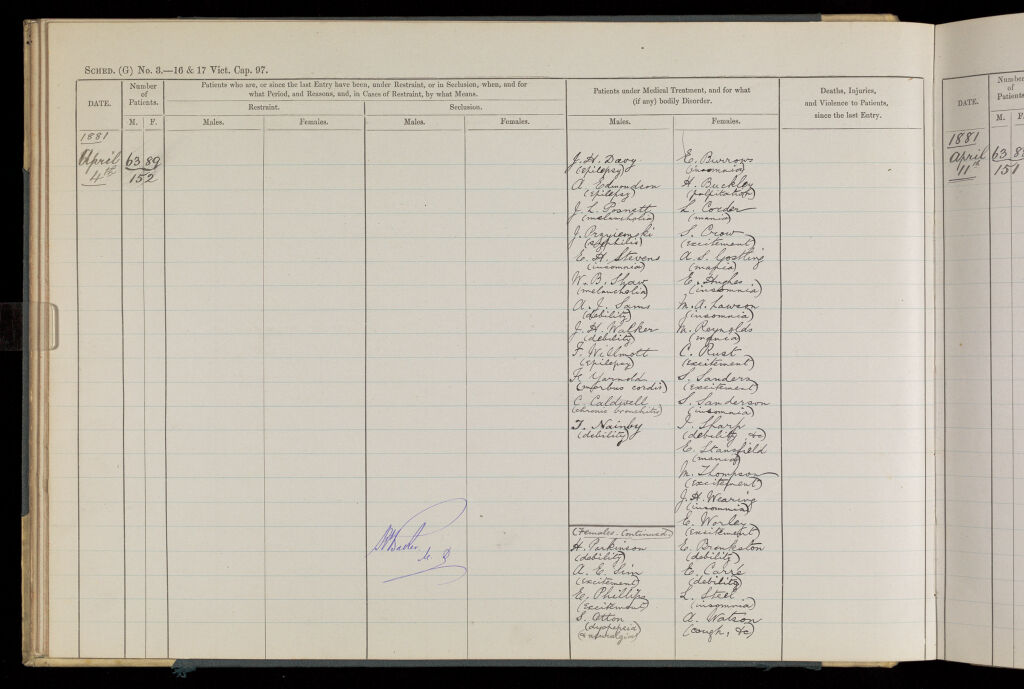 SCHED. (G) No. 3.—16 & 17 Vict. Cap. 97.
DATE.
Number of Patients.
M. F.
Patients who are, or since the last Entry have been, under Restraint, or in Seclusion, when, and for
what Period, and Reasons, and, in Cases of Restraint, by what Means.
Restraint.
Seclusion.
Males.
Females.
Males.
Females.
Patients under Medical Treatment, and for what
(if any) bodily Disorder.
Males.
Females.
Deaths, Injuries,
and Violence to Patients,
since the last Entry.
1881
April 4th
63 89
152
J. H. Davy
(epilepsy)
A. Edmondson
(epilepsy)
J. L. Posnett
(melancholia)
J. Przyiemski
(syphilis)
E. H. Stevens
(insomnia)
W. B. Shaw
(melancholia)
A. J. Sams
(debility)
J. H. Walker
(debility)
F. Willmott
(epilepsy)
H. Yarnold
(morbus cordis)
C. Caldwell
(chronic bronchitis)
T. Nainby
(debility)
(Females. Continued.)
H. Parkinson
(debility)
A. E. Sim
(excitement)
E. Phillips
(excitement)
S. Otton
(dyspepsia
& neuralgia)
E. Burrows
(insomnia)
H. Buckley
(palpitation)
L. Corder
(mania)
S. Crow
(excitement)
A. S. Gostling
(mania)
E. Hughes
(insomnia)
M. A. Lawson
(insomnia)
M. Reynolds
(mania)
C. Rust
(excitement)
S. Sanders
(excitement)
S. Sanderson
(insomnia)
I. Sharp
(debility, &c)
E. Stansfield
(mania)
M. Thompson
(excitement)
J. H. Wearing
(insomnia)
E. Worley
(excitement)
E. Bronkston
(debility)
E. Carré
(debility)
L. Steel
(insomnia)
A. Watson
(cough, &c)
DATE.
M. F.
1881
April 11th
63
151